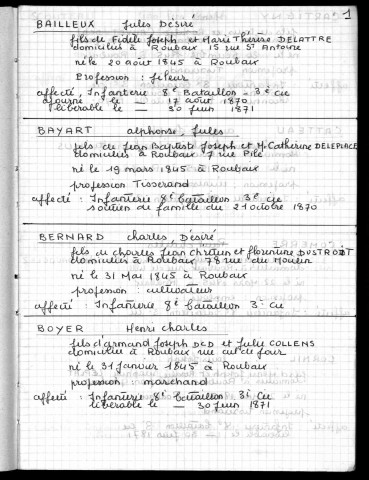 1
BAILLEUX Jules Désiré
fils de Fidèle Joseph et Marie Thérèse DELATTRE
domicilié à Roubaix 15 rue St Antoine
né le 20 août 1845 à Roubaix
Profession : fileur
affecté, Infanterie 8e Bataillon - 3e Cie
ajourné le — 17 août 1870
libérable le — 30 Juin 1871
BAYART alphonse, Jules
fils de Jean Baptiste Joseph et M. Catherine DELEPLACE
domicilié à Roubaix 7 rue Pile
né le 19 mars 1845 à Roubaix
profession Tisserand
affecté : Infanterie 8e bataillon 3e Cie
soutien de famille du 21 octobre 1870
BERNARD charles, Désiré
fils de charles Jean chrétien et florentine DUSTROIT
domicilié à Roubaix 78 rue du Moulin
né le 31 Mai 1845 à Roubaix
profession : cultivateur
affecté : Infanterie 8e bataillon 3e Cie
BOYER Henri charles
fils d'armand Joseph DCD et Julie COLLENS
domicilié à Roubaix rue cul de four
né le 31 Janvier 1845 à Roubaix
profession marchand
affecté : Infanterie 8e bataillon 3e Cie
libérable le — 30 Juin 1871